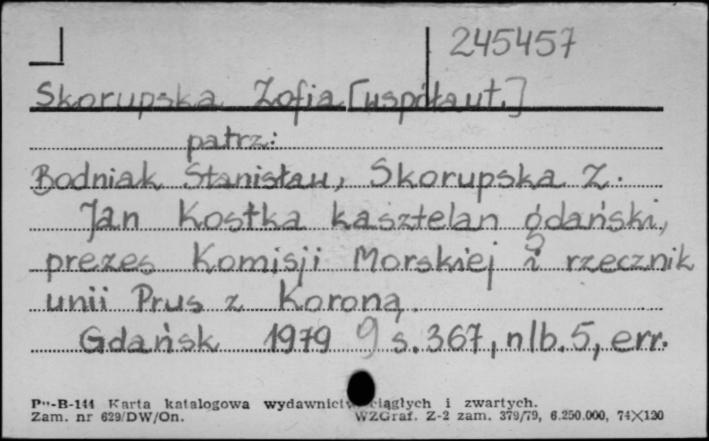 245457
Skorupska Zofia [współaut.]
patrz:
Bodniak Stanisław, Skorupska Z.
Jan Kostka kasztelan gdański,
prezes Komisji Morskiej i rzecznik
unii Prus z Koroną.
Gdańsk 1979 9 s. 367, nlb. 5, err.
-B-144 Karta katalogowa wydawnictw ciągłych i zwartych.
Zam. nr 629/DW/On. WZGraf. Z-2 zam. 379/79, 6.250.000, 74×120